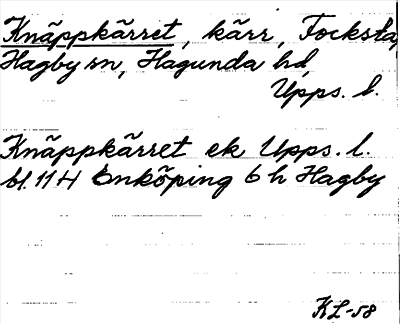 Knäppkärret, kärr, Focksta,
Hagby sn, Hagunda hd,
Upps. l.
Knäppkärret ek Upps. l.
bl. 11 H Enköping 6 h Hagby
KL-58